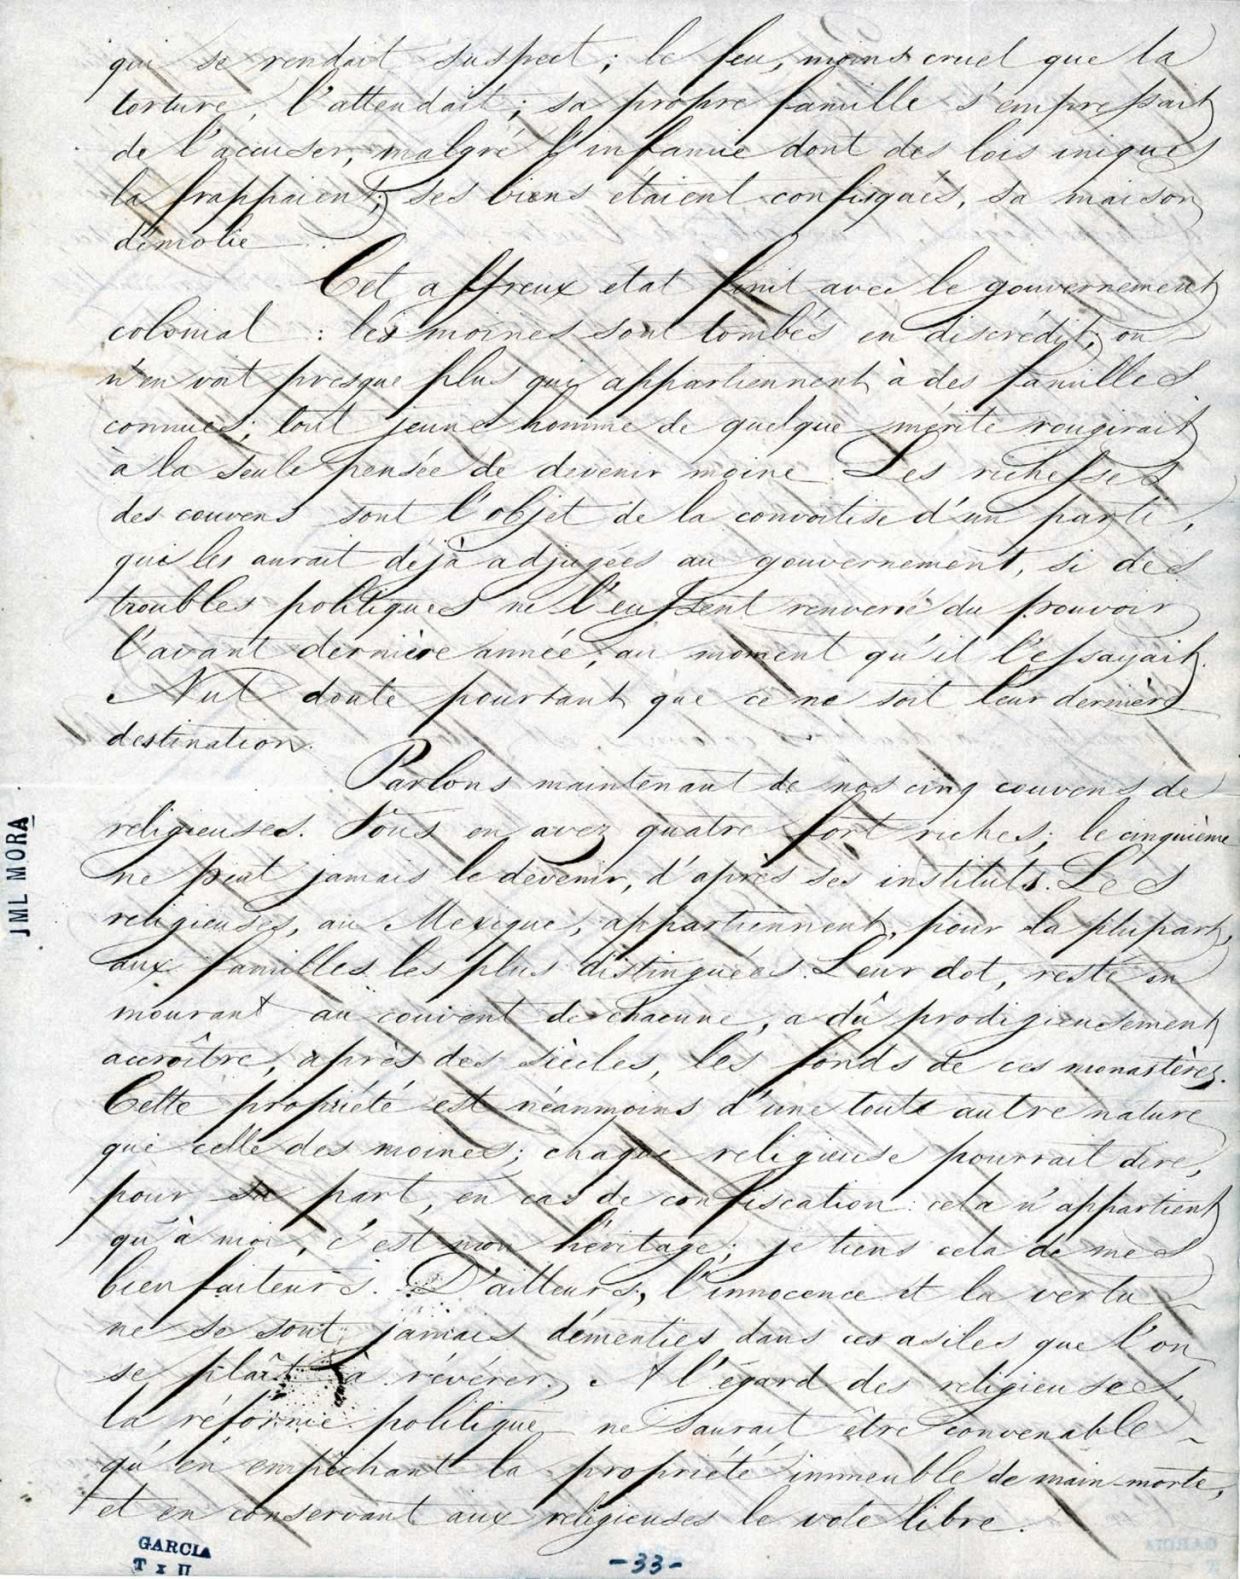 qui se rendait suspect; le feu, moins cruel que la
torture, l'attendait; sa propre famille s'empressait
de l'accuser, malgré l'infamie dont des lois iniques
la frappaient; ses biens étaient confisqués, sa maison
démolie.
Cet affreux état finit avec le gouvernement
colonial : les moines sont tombés en discrédit; on
n'en voit presque plus qui appartiennent à des familles
connues; tout jeune homme de quelque mérite rougirait
à la seule pensée de devenir moine. Les richesses
des couvens sont l'objet de la convoitise d'un parti,
qui les aurait déjà adjugées au gouvernement, si des
troubles politiques ne l'eussent renversé du pouvoir
l'avant dernière année, au moment qu'il l'essayait.
Nul doute pourtant que ce ne soit leur dernière
destination.
Parlons maintenant de nos cinq couvens de
religieuses. Vous en avez quatre fort riches; le cinquième
ne peut jamais le devenir, d'après ses instituts. Les
religieuses, au Mexique, appartiennent, pour la plupart,
aux familles les plus distinguées. Leur dot, resté en
mourant au couvent de chacune, a dû prodigieusement
accroître, après des siècles, les fonds de ces monastères.
Cette propriété est néanmoins d'une toute autre nature
que celle des moines; chaque religieuse pourrait dire,
pour sa part, en cas de confiscation : cela n'appartient
qu'à moi, c'est mon héritage; je tiens cela de mes
bienfaiteurs. D'ailleurs, l'innocence et la vertu
ne se sont jamais démenties dans ces asiles que l'on
se plaît à révérer. A l'égard des religieuses,
la réforme politique ne saurait être convenable
qu'en empêchant la propriété immeuble de main-morte,
et en conservant aux religieuses le vote libre.
JML MORA
GARCIA
T x II
-33-